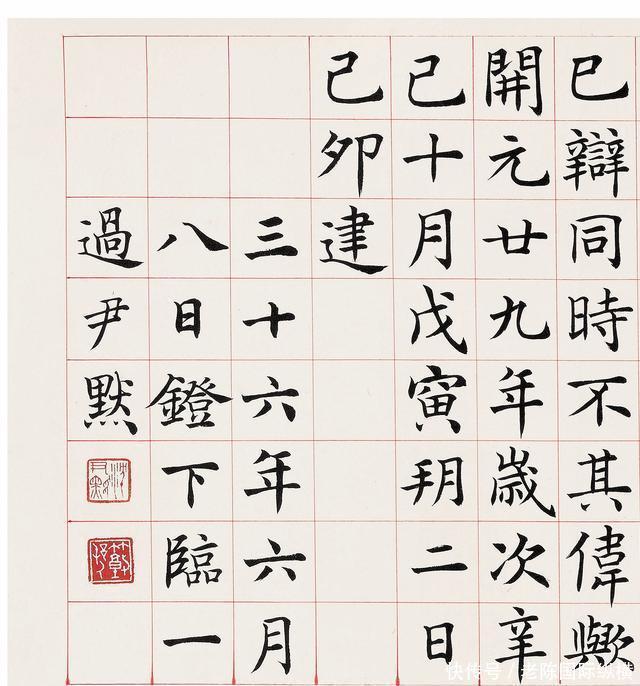 已辯同時不其偉歟
開元廿九年歲次辛
已十月戊寅玥二日
己卯建
三十六年六月
八日鐙下臨一
過尹默
快传号／老陈国际纵横